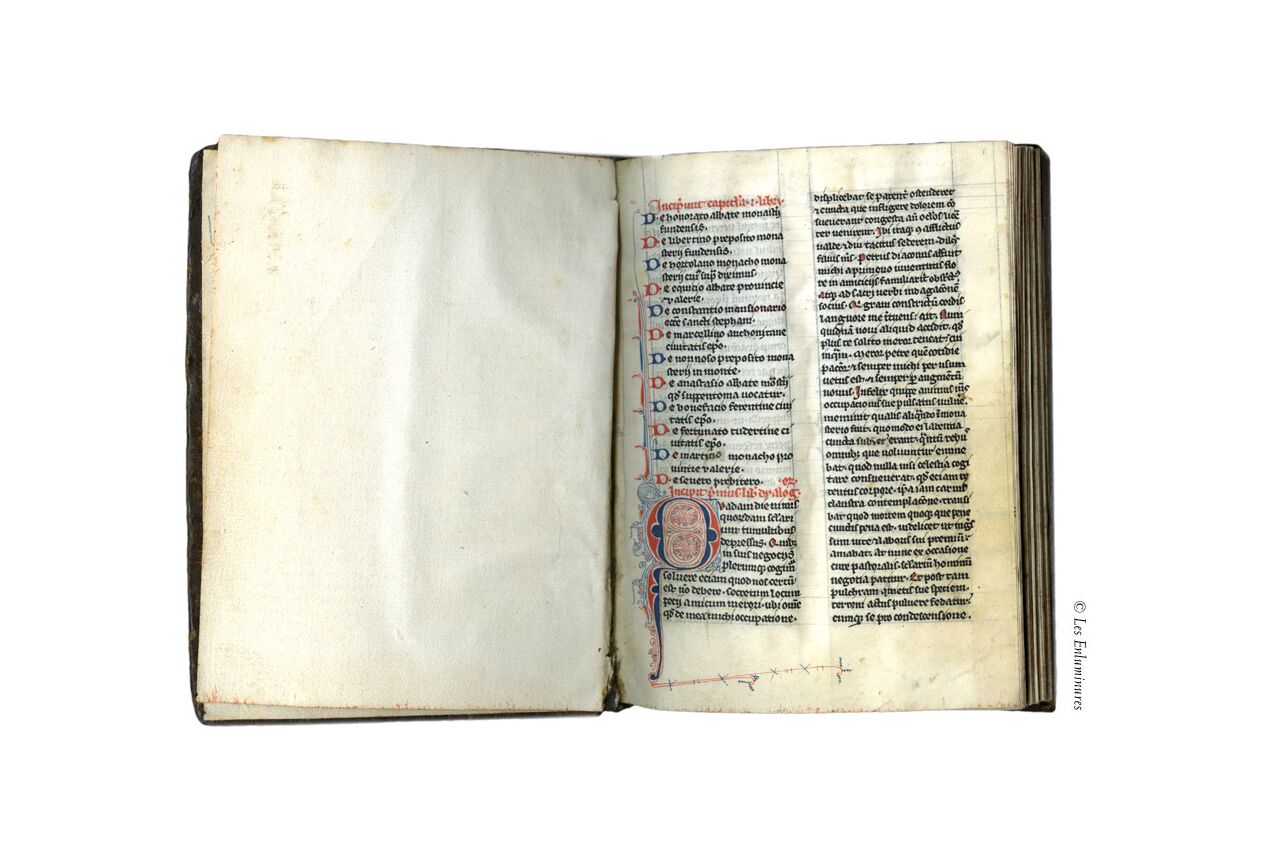 Incipiunt capitula · i · libri ·
De honorato abbate monast̄ij
fundensis ·
De libertino preposito mona
sterij fundensis ·
De hortolano monacho mona
sterij cui' sup̄ diximus ·
De equitio abbate prouincie
valerie ·
De constantio mansionario
ecc̄e sancti stephani ·
De marcellino anchonitane
ciuitatis ep̄o ·
De nonnoso preposito mona
sterij in monte ·
De anastasio abbate mōst̄ij
qd̄ suppentoma uocatur ·
De bonefacio ferentine ciui
tatis ep̄o ·
De fortunato tudertine ci
uitatis ep̄o ·
De martino monacho pro
uintie valerie ·
De seuero presbitero ·
Incipit p̄mus lib' dyalog̾
Quadam die nimiis
quorūdam sclari
um tumultibus
depressus · Quib;
in suis negocijs
plerumq; cogim̾
soluere eciam quod nos certū
est nō debere · secretum locum
petij amicum merori · ubi om̄e
qd̄ de mea michi occupatione ·
displicebat se patent̾ ostenderet
⁊ cuncta que infligere dolorem cō
sueuerant congesta an̄ oculos licē
ter uenirent · Ibi itaq; cū afflictus
ualde ⁊ diu tacitus sederem · dilc̄s
filius m̄s · petrus diaconus affuit
michi a primeuo iuuentutis flo
re in amicicijs familiarit̾
atq; ad sacri uerbi indagacōnem
socius · Qi graui cordis
languore me ītuens · ait · Num
quidnā noui aliquid accidit · qd̄
plus te solito meror teneat · cui
inq̄m · Meror petre quē cotidie
pacior ⁊ semper michi per usum
uetus est · ⁊ semper p̄ augmentū
nouus · Infelix quippe animus m̄s
occupacionis sue pulsatus uulne ·
meminit qualis aliqn̄do ī mona
sterio fuit · quomodo ei labentia
cuncta subter erant · q̄ntū rebus
omnib; que uoluuntur emine
bat · quod nulla nisi celestia cogi
tare consueuerat · qd̄ eciam re
tentus corpore · ip̄a iam carnis
claustra contemplacōne transi
bat · quod mortem quoq; que pene
cunctis pena est · uidelicet ut ing̾ssum
uite ⁊ laboris sui premiū
amabat · At nunc ex occasione
cure pastoralis · sclariū hominū
negotia patitur · Et post tam
pulchram quietis sue speciem ·
terreni actus puluere fedatur ·
cumq; se pro condescensione ·
© Les Enluminures